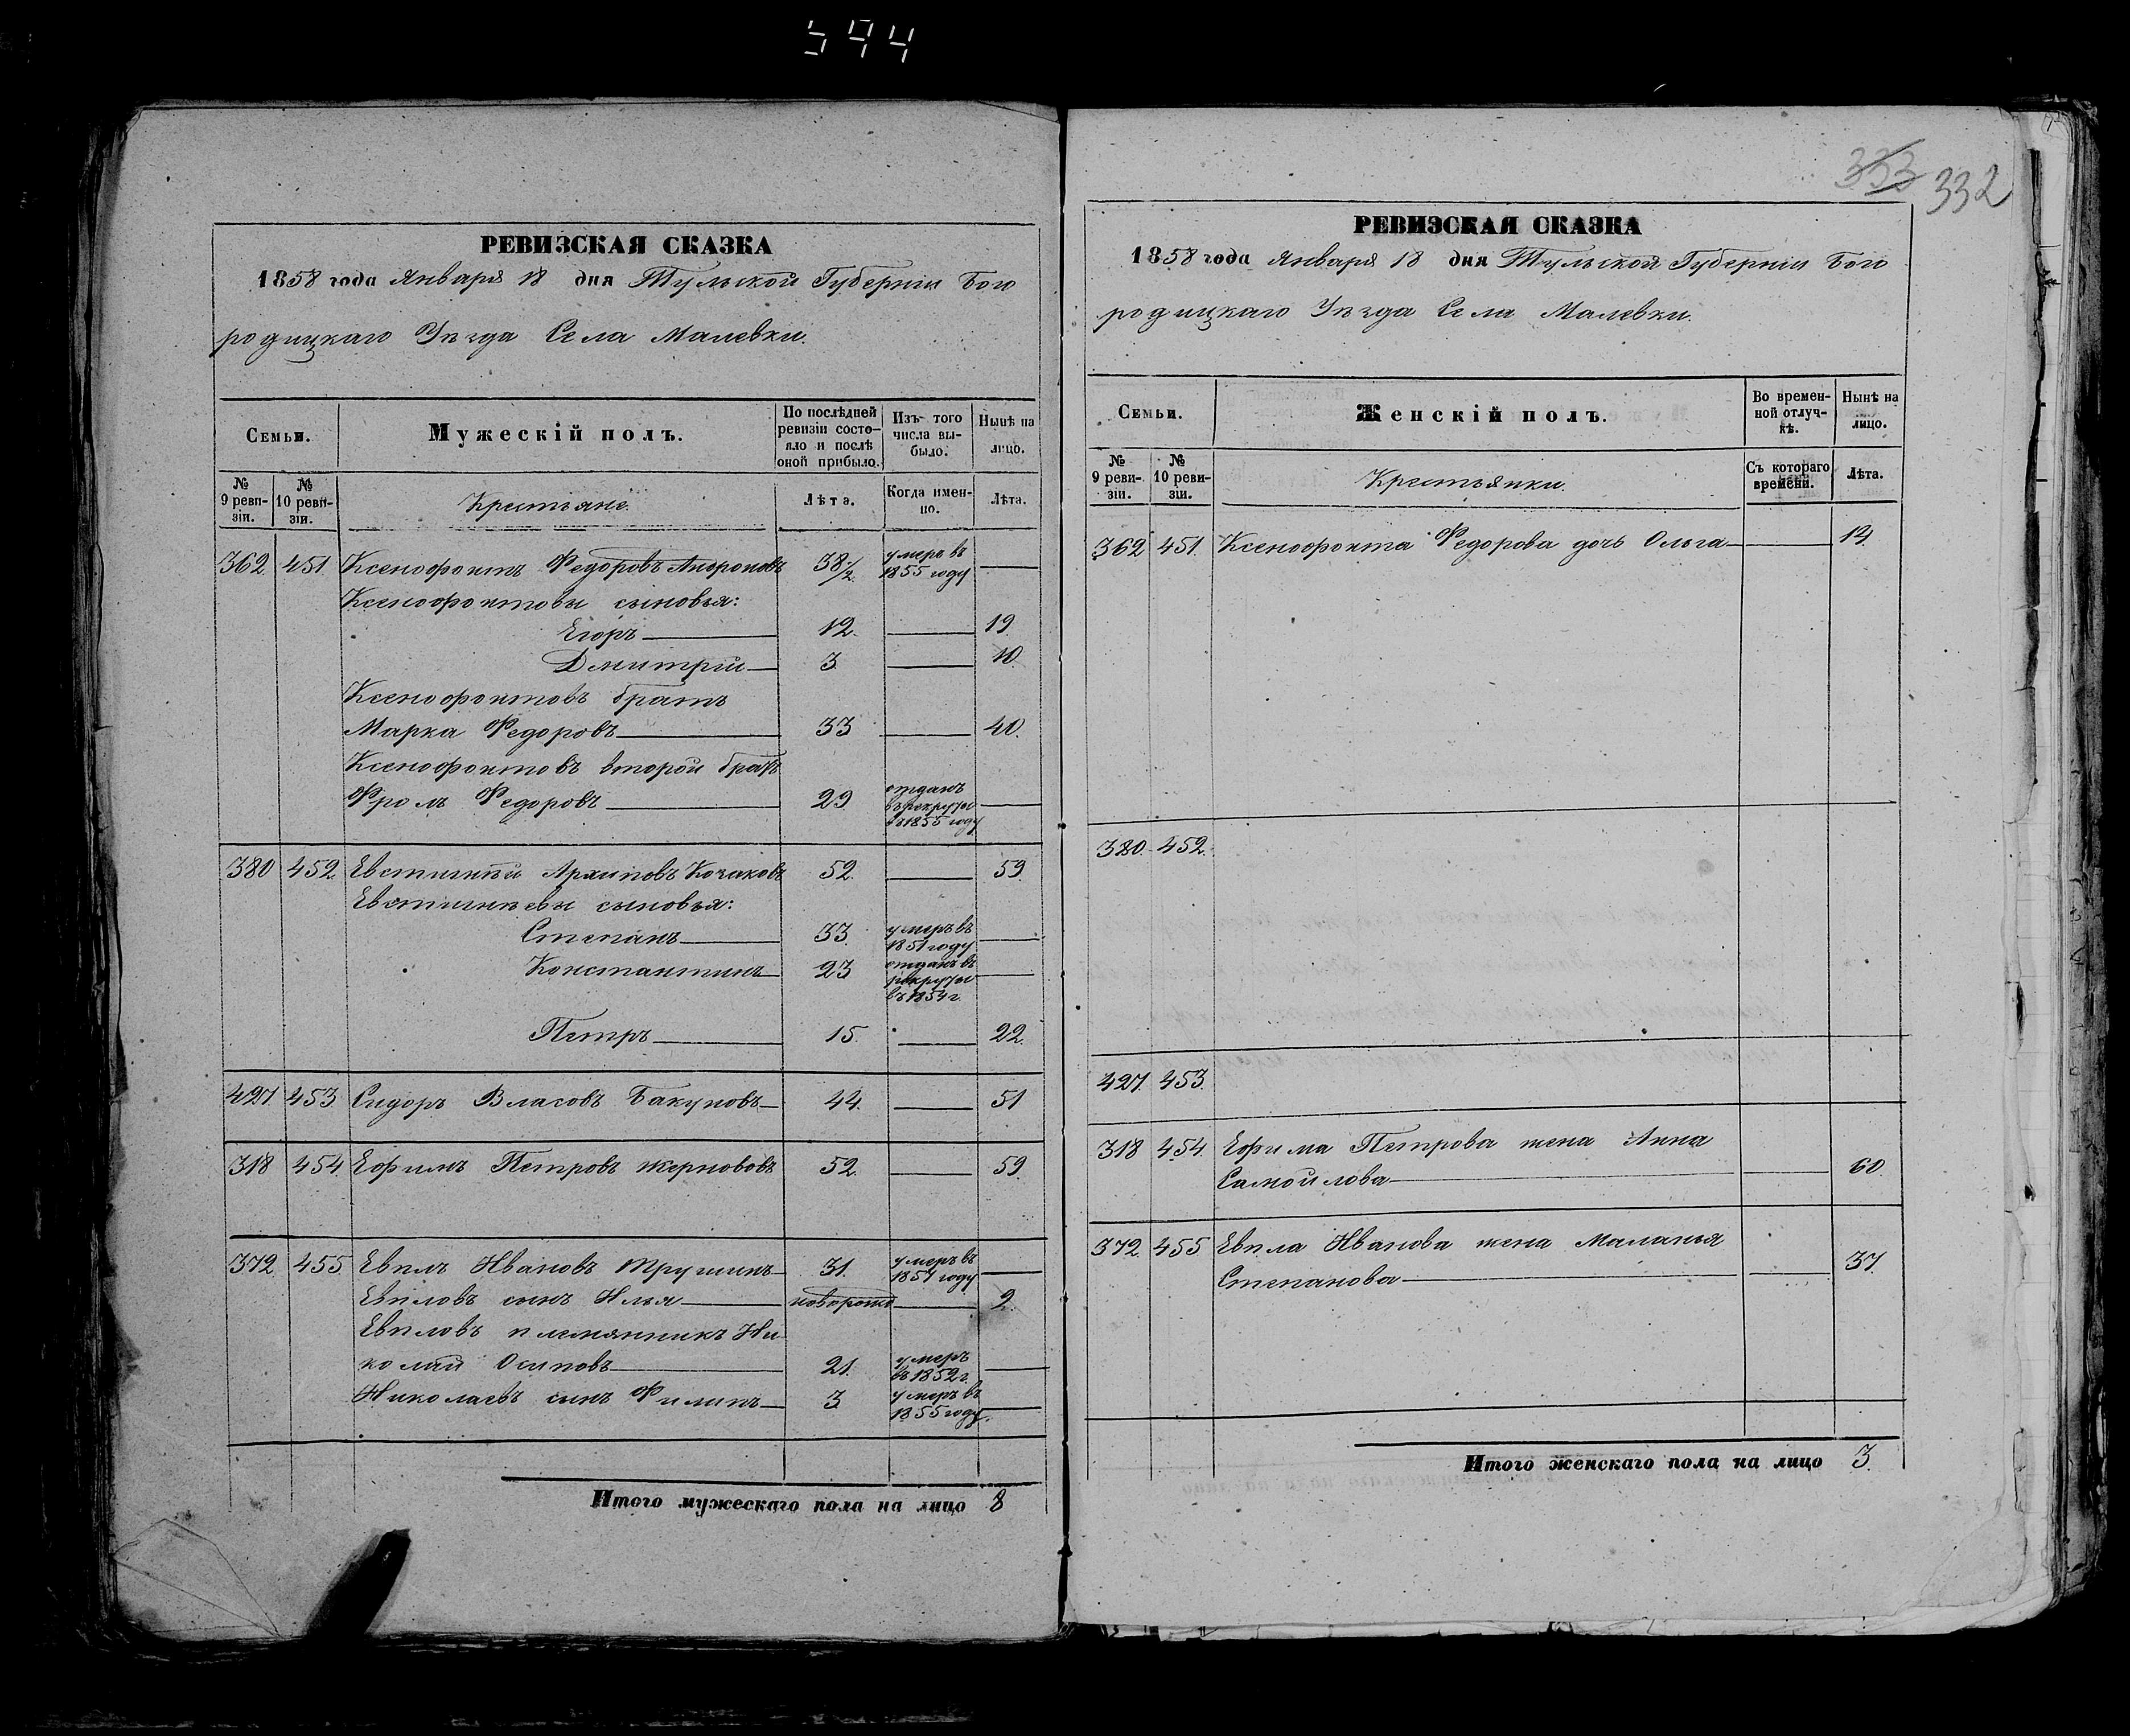 344
РЕВИЗСКАЯ СКАЗКА
1858 года Января 18 дня Тульской Губерніи Бого
родицкаго Уѣзда Села Малевки.
Семьи.
Мужескій полъ.
По послѣдней ревизіи состояло и послѣ оной прибыло.
Изъ того числа выбыло.
Нынѣ на лицо.
№ 9 ревизіи.
№ 10 ревизіи.
Крестьяне.
Лѣта.
Когда именно.
Лѣта.
362 451 Ксенофонтъ Федоровъ Андроновъ 38 1/2 умеръ въ 1855 году —
Ксенофонтовы сыновья:
Егоръ 12. — 19
Дмитрій 3. — 10.
Ксенофонтовъ братъ
Марка Федоровъ 33 — 40.
Ксенофонтовъ второй братъ
Фролъ Федоровъ 29 отданъ въ рекруты въ 1855 году —
380 452 Евстигнѣй Архиповъ 52. — 59
Евстигнѣевы сыновья:
Степанъ 33. умеръ въ 1851 году —
Константинъ 23 отданъ въ рекруты въ 1854 г. —
Петръ 15. — 22.
427. 453. Сидоръ Власовъ Бакуновъ 44. — 51
318 454 Ефимъ Петровъ Жернововъ 52. — 59.
372 455 Евплъ Ивановъ Трушинъ 31. умеръ въ 1854 году —
Евпловъ сынъ Илья новорожд — 2.
Евпловъ племянникъ Ни
колай Осиповъ 21. умеръ въ 1852 г. —
Николаевъ сынъ Филипъ 3 умеръ въ 1855 году. —
Итого мужескаго пола на лицо 8
333 332
РЕВИЗСКАЯ СКАЗКА
1858 года Января 18 дня Тульской Губерніи Бого
родицкаго Уѣзда Села Малевки.
Семьи.
Женскій полъ.
Во временной отлучкѣ.
Нынѣ на лицо.
№ 9 ревизіи.
№ 10 ревизіи.
Крестьянки.
Съ котораго времени.
Лѣта.
362 451. Ксенофонта Федорова дочь Ольга — 14.
380. 452.
427. 453.
318 454. Ефима Петрова жена Анна
Самойлова — 60.
372. 455 Евпла Иванова жена Маланья
Степанова — 37.
Итого женскаго пола на лицо 3.